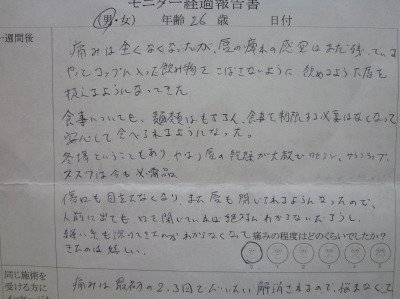 モニター経過報告書
(男・女) 年齢 26 歳 日付
一週間後
痛みは全くなくなったが、唇の痺れの感覚はまだ残っている
やっとコップに入った飲み物をこぼさないように飲めるよう
になってきた
食事についても、麺類はもちろん、食事で
はなくなって
安心して食べられるようになった。
冬場ということもあり、やはり唇の乾燥が大敵でワセリン、
マスクは今も必需品
傷口も目立たなくなり、また唇も閉じれるようになったので、
人前に出ても口を閉じていれば絶対わからないだろうし、
わからなくなって
きたのは嬉しい。
痛みの程度はどのくらいでしたか?
0 1 2 3 4 5
同じ施術を
受ける方に
痛みは最初の2.3回でだいたい解消されますので、悩まなくて